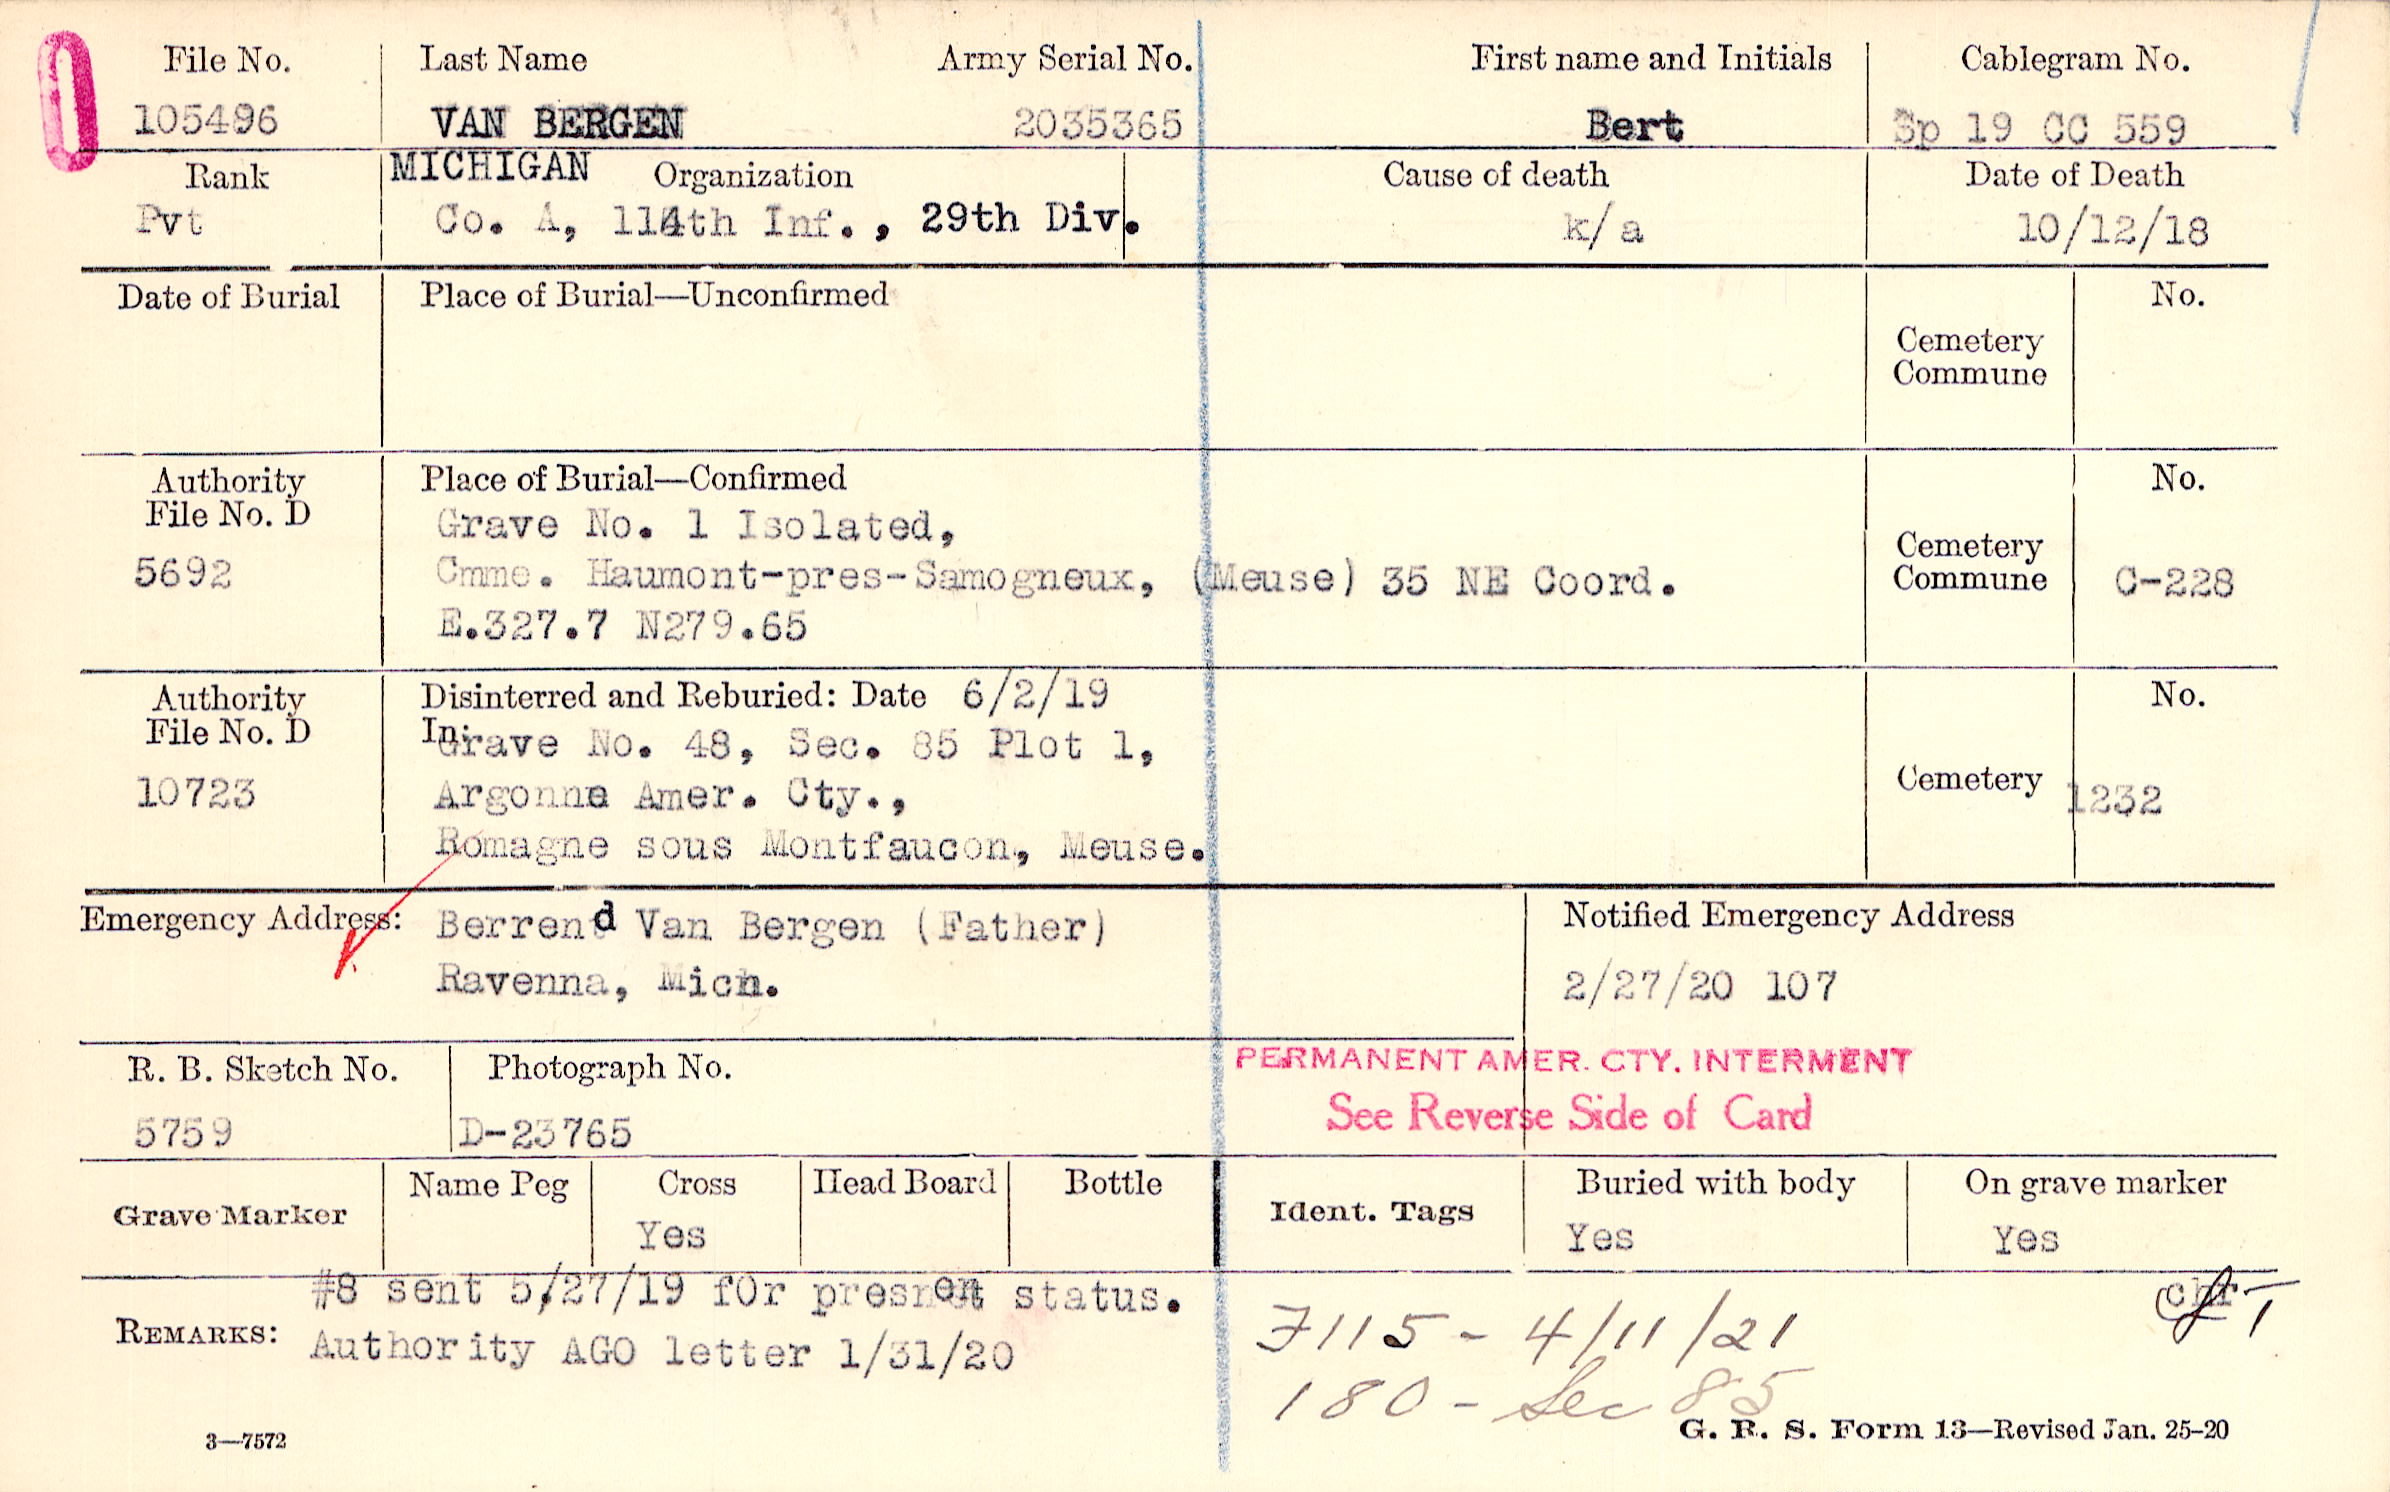 File No. Last Name Army Serial No. First name and Initials Cablegram No.
105496 VAN BERGEN 2035365 Bert Sp 19 CC 559
Rank MICHIGAN Organization Cause of death Date of Death
Pvt Co. A, 114th Inf., 29th Div. k/a 10/12/18
Date of Burial Place of Burial—Unconfirmed No.
Cemetery
Commune
Authority Place of Burial—Confirmed No.
File No. D Grave No. 1 Isolated,
5692 Cmme. Haumont-pres-Samogneux, (Meuse) 35 NE Coord. Cemetery
Commune C-228
E.327.7 N279.65
Authority Disinterred and Reburied: Date 6/2/19 No.
File No. D In: Grave No. 48, Sec. 85 Plot 1,
10723 Argonne Amer. Cty., Cemetery 1232
Romagne sous Montfaucon, Meuse.
Emergency Address: Berrend Van Bergen (Father) Notified Emergency Address
Ravenna, Mich. 2/27/20 107
R. B. Sketch No. Photograph No. PERMANENT AMER. CTY. INTERMENT
5759 D-23765 See Reverse Side of Card
Grave Marker Name Peg Cross Head Board Bottle Ident. Tags Buried with body On grave marker
Yes Yes Yes
#8 sent 5/27/19 f0r presnent status. chr
REMARKS: Authority AGO letter 1/31/20 7115 - 4/11/21
180 - Sec 85
3—7572 G. R. S. Form 13—Revised Jan. 25-20